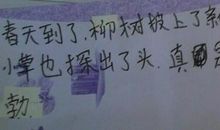 春天到了,柳树披上了
小草也探出了头.真
勃.